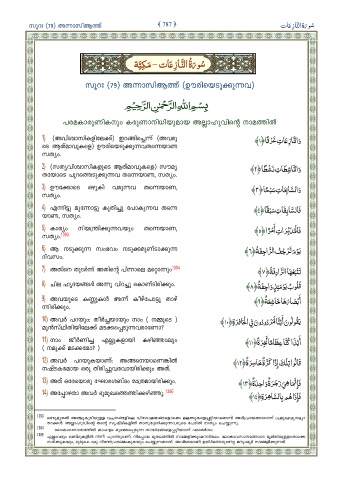 സൂറഃ (79) അന്നാസിആത്ത് ﴾ 787 ﴿ سُورَةُ النَّازِعَات
سُورَةُ النَّازِعَات - مَكِّيَّة
സൂറഃ (79) അന്നാസിആത്ത് (ഊരിയെടുക്കുന്നവ)
بِسْمِ اللَّهِ الرَّحْمَٰنِ الرَّحِيمِ
പരമകാരുണികനും കരുണാനിധിയുമായ അല്ലാഹുവിന്റെ നാമത്തിൽ
1) (അവിശ്വാസികളിലേക്ക്) ഇറങ്ങിച്ചെന്ന് (അവരു
ടെ ആത്മാവുകളെ) ഊരിയെടുക്കുന്നവതന്നെയാണ
സത്യം.
وَالنَّازِعَاتِ غَرْقًا ﴿١﴾
2) (സത്യവിശ്വാസികളുടെ ആത്മാവുകളെ) സൗമ്യ
തയോടെ പുറത്തെടുക്കുന്നവ തന്നെയാണ, സത്യം.
وَالنَّاشِطَاتِ نَشْطًا ﴿٢﴾
3) ഊക്കോടെ ഒഴുകി വരുന്നവ തന്നെയാണ,
സത്യം.
وَالسَّابِحَاتِ سَبْحًا ﴿٣﴾
4) എന്നിട്ടു മുന്നോട്ടു കുതിച്ചു പോകുന്നവ തന്നെ
യാണ, സത്യം.
فَالسَّابِقَاتِ سَبْقًا ﴿٤﴾
5) കാര്യം നിയന്ത്രിക്കുന്നവയും തന്നെയാണ,
സത്യം.
فَالْمُدَبِّرَاتِ أَمْرًا ﴿٥﴾
6) ആ നടുക്കുന്ന സംഭവം നടുക്കമുണ്ടാക്കുന്ന
ദിവസം.
يَوْمَ تَرْجُفُ الرَّاجِفَةُ ﴿٦﴾
7) അതിനെ തുടർന്ന് അതിന്റെ പിന്നാലെ മറ്റൊന്നും
تَتْبَعُهَا الرَّادِفَةُ ﴿٧﴾
8) ചില ഹൃദയങ്ങൾ അന്നു വിറച്ചു കൊണ്ടിരിക്കും.
قُلُوبٌ يَوْمَئِذٍ وَاجِفَةٌ ﴿٨﴾
9) അവയുടെ കണ്ണുകൾ അന്ന് കീഴ്പോട്ടു താഴ്
ന്നിരിക്കും.
أَبْصَارُهَا خَاشِعَةٌ ﴿٩﴾
10) അവർ പറയും: തീർച്ചയായും നാം ( നമ്മുടെ )
മുൻസ്ഥിതിയിലേക്ക് മടക്കപ്പെടുന്നവരാണോ?
يَقُولُونَ أَإِنَّا لَمَرْدُودُونَ فِي الْحَافِرَةِ ﴿١٠﴾
11) നാം ജീർണിച്ച എല്ലുകളായി കഴിഞ്ഞാലും
( നമുക്ക് മടക്കമോ? )
أَإِذَا كُنَّا عِظَامًا نَّخِرَةً ﴿١١﴾
12) അവർ പറയുകയാണ്: അങ്ങനെയാണെങ്കിൽ
നഷ്ടകരമായ ഒരു തിരിച്ചുവരവായിരിക്കും അത്.
قَالُوا تِلْكَ إِذًا كَرَّةٌ خَاسِرَةٌ ﴿١٢﴾
13) അത് ഒരേയൊരു ഘോരശബ്ദം മാത്രമായിരിക്കും.
فَإِنَّمَا هِيَ زَجْرَةٌ وَاحِدَةٌ ﴿١٣﴾
14) അപ്പോഴതാ അവർ ഭൂമുഖത്തെത്തിക്കഴിഞ്ഞു.
فَإِذَا هُم بِالسَّاهِرَةِ ﴿١٤﴾